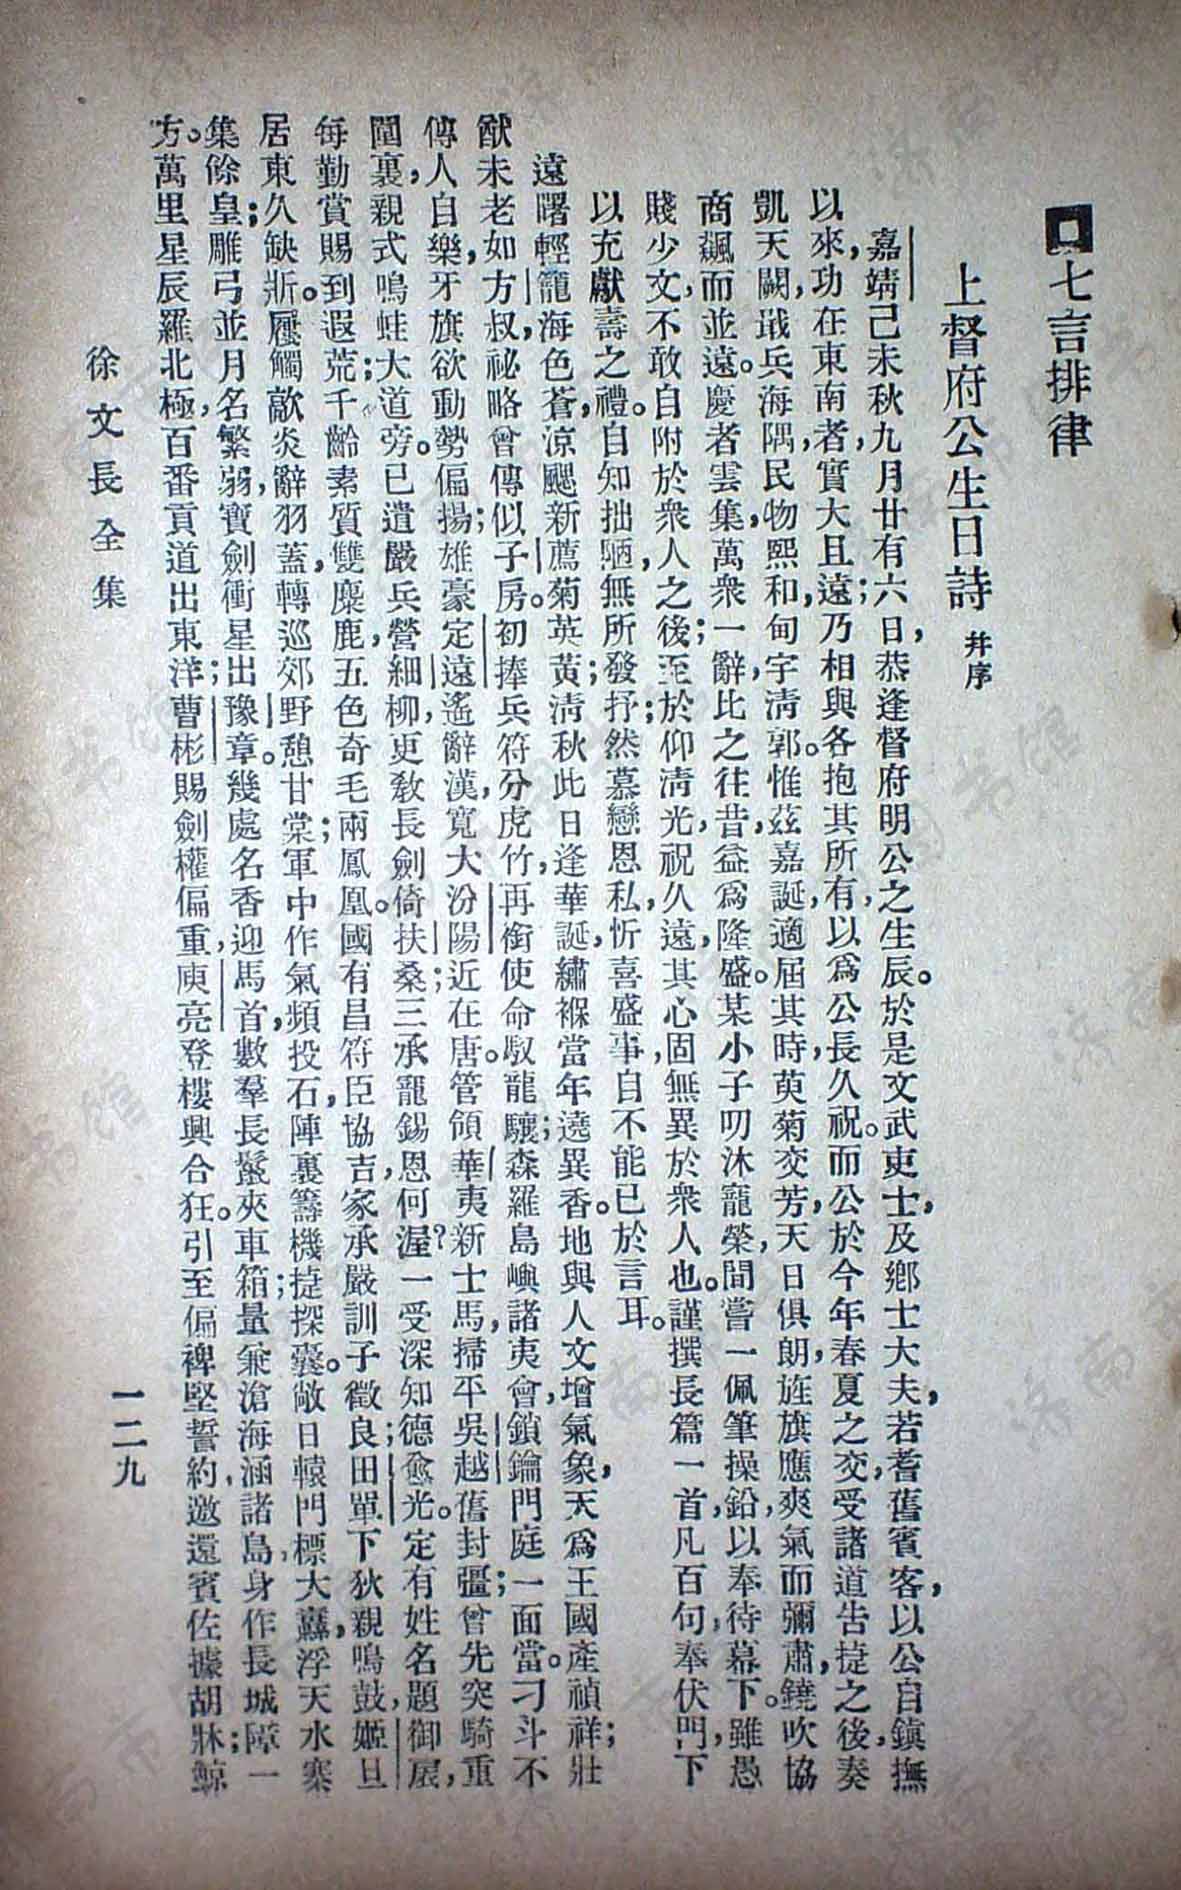 七言排律
上督府公生日詩 并序
嘉靖己未秋九月廿有六日，恭逢督府明公之生辰。於是文武吏士，及鄉士大夫，若耆舊賓客，以公自鎮撫
以來，功在東南者，實大且遠；乃相與各抱其所有，以爲公長久祝。而公於今年春夏之交，受諸道告捷之後，奏
凱天闕，戢兵海隅，民物熙和，甸宇清郭。惟茲嘉誕，適屆其時，萸菊交芳，天日俱朗，旌旗應爽氣而彌肅，鐃吹協
商飆而並遠。慶者雲集，萬衆一辭，比之往昔，益爲隆盛。某小子叨沐寵榮，間嘗一佩筆操鉛，以奉待幕下。雖愚
賤少文，不敢自附於衆人之後；至於仰清光，祝久遠，其心固無異於衆人也。謹撰長篇一首，凡百句，奉伏門下，
以充獻壽之禮。自知拙陋，無所發抒；然慕戀恩私，忻喜盛事，自不能已於言耳。
遠曙輕籠海色蒼，涼颸新薦菊英黃；清秋此日逢華誕，繡褓當年遶異香。地與人文增氣象，天爲王國產禎祥；壯
猷未老如方叔，祕略曾傳似子房。初捧兵符分虎竹，再銜使命馭龍驤；森羅島嶼諸夷會，鎖鑰門庭一面當。刁斗不
傳人自樂，牙旗欲動勢偏揚；雄豪定遠遙辭漢，寬大汾陽近在唐。管領華夷新士馬，掃平吳越舊封彊；曾先突騎重
圍裏，親式鳴蛙大道旁。已遣嚴兵營細柳，更敎長劍倚扶桑；三承寵錫恩何渥？一受深知德愈光。定有姓名題御扆，
每勤賞賜到遐荒；千齡素質雙麋鹿，五色奇毛兩鳳凰。國有昌符臣協吉，家承嚴訓子徵良；田單下狄親鳴鼓，姬旦
居東久缺斨。屨觸敵炎辭羽蓋，轉巡郊野憩甘棠；軍中作氣頻投石，陣裏籌機捷探囊。敞日轅門標大纛，浮天水寨
集艅皇；雕弓並月名繁弱，寶劍衝星出豫章。幾處名香迎馬首，數羣長鬣夾車箱；量兼滄海涵諸島，身作長城障一
方。萬里星辰羅北極，百番貢道出東洋；曹彬賜劍權偏重，庾亮登樓興合狂。引至偏裨堅誓約，邀還賓佐據胡牀；鯨
徐文長全集
一二九